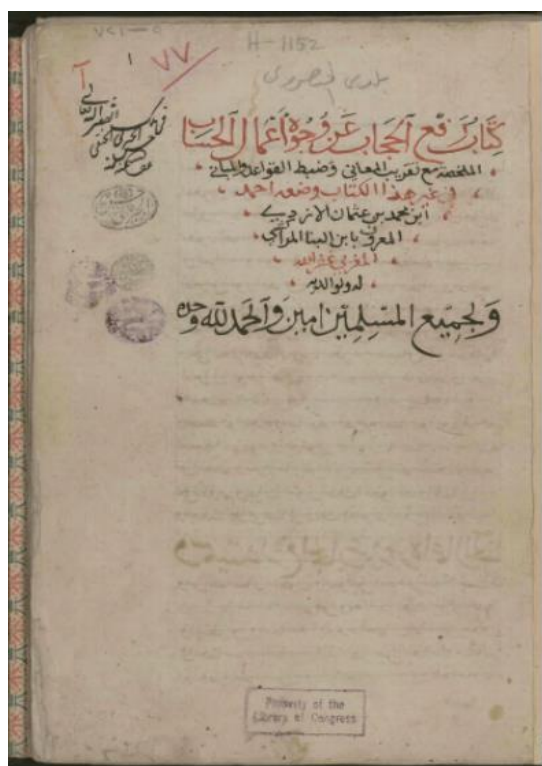 H-1152
٧٧
١
كتاب رفع الحجاب عن وجوه اعمال الحساب
الملخصة مع تقريب المعاني وضبط القواعد والمباني
في غير هذا الكتاب وضعه احمد
ابن محمد بن عثمان الازدي
المعروف بابن البنا المراكشي
المغربي غفر الله
له ولوالديه
ولجميع المسلمين امين والحمد لله وحده
Property of the
Library of Congress